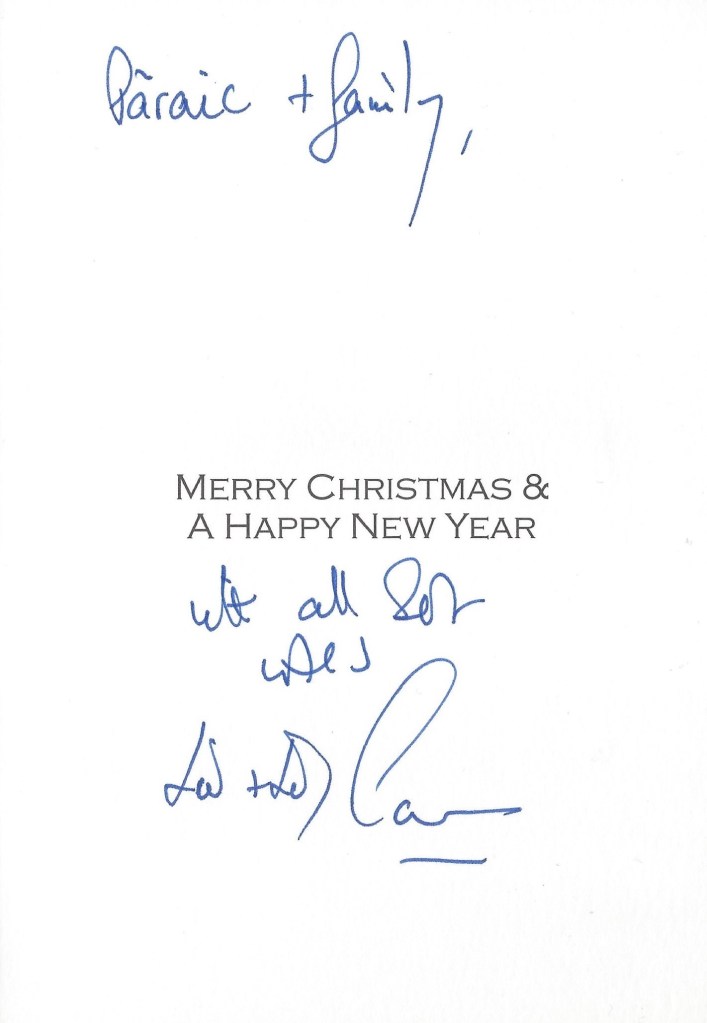 Páraic + family,
MERRY CHRISTMAS &
A HAPPY NEW YEAR
with all Best
wishes